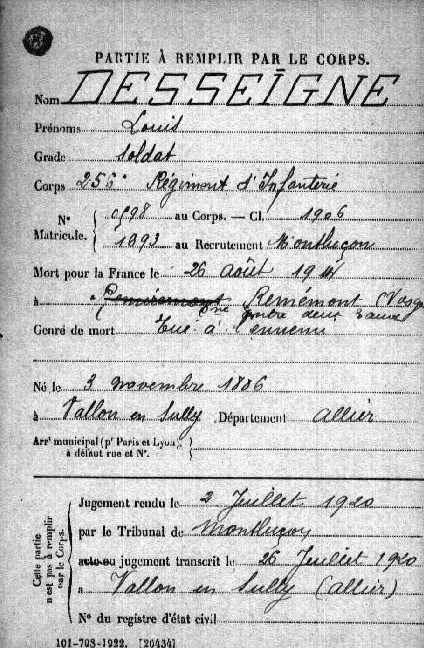 PARTIE À REMPLIR PAR LE CORPS.
Nom DESSEIGNE
Prénoms Louis
Grade Soldat
Corps 256e Régiment d'Infanterie
N° Matricule. { 0598 au Corps. — Cl. 1906
1393 au Recrutement Montluçon
Mort pour la France le 26 août 1914
à Remémont (Vosges
entre deux eaux
Genre de mort Tué à l'ennemi
Né le 3 novembre 1886
à Vallon en Sully Département Allier
Arrt municipal (pr Paris et Lyon), }
à défaut rue et N°.
Cette partie n'est pas à remplir par le Corps.
Jugement rendu le 2 Juillet 1920
par le Tribunal de Montluçon
acte ou jugement transcrit le 26 Juillet 1920
à Vallon en Sully (Allier)
N° du registre d'état civil
101-708-1922. [26434]